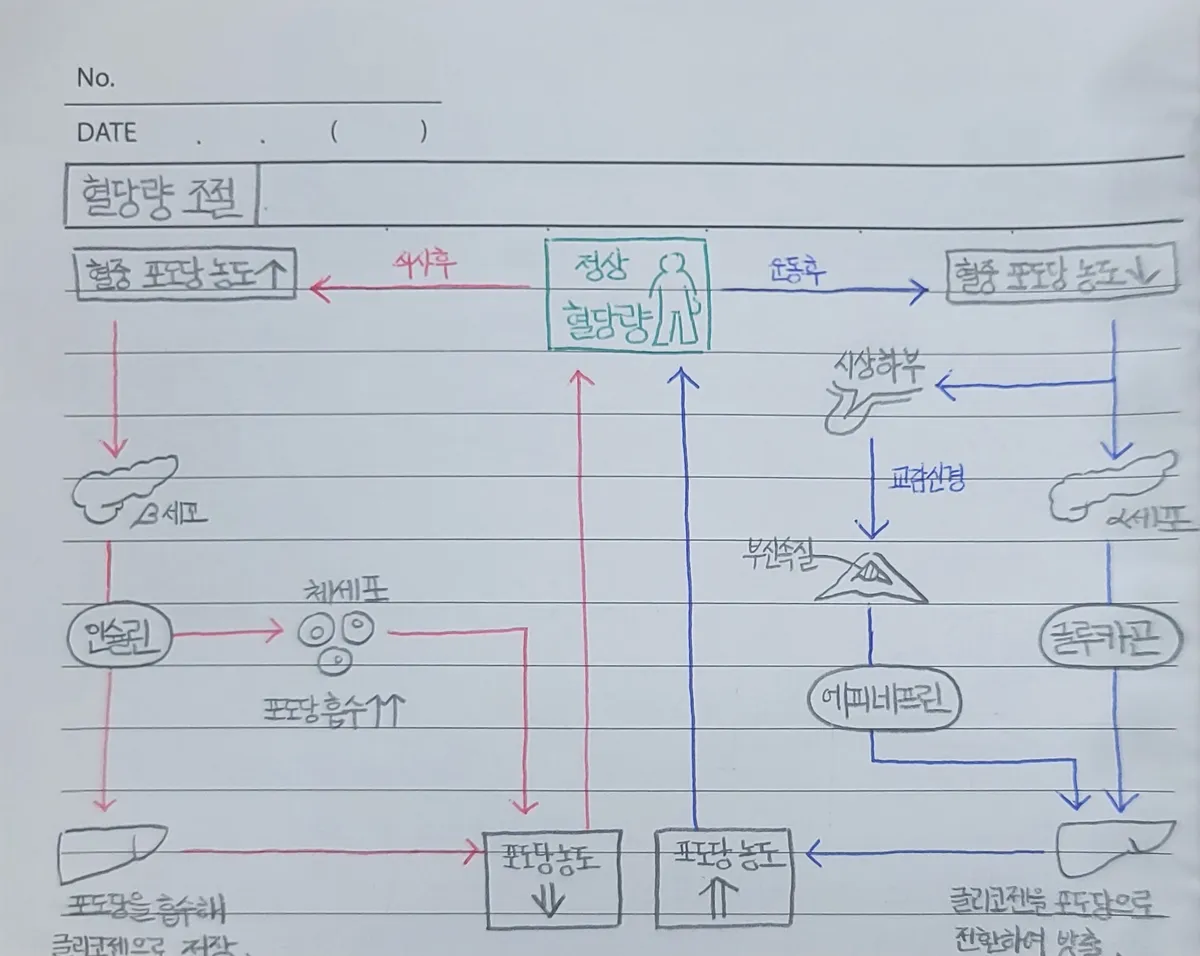 No.
DATE . . ( )
혈당량 조절
혈중 포도당 농도↑
식사후
정상
혈당량
운동후
혈중 포도당 농도↓
시상하부
교감신경
β세포
α세포
부신속질
체세포
인슐린
글루카곤
포도당 흡수↑↑
에피네프린
포도당 농도
⇓
포도당 농도
⇑
포도당을 흡수해
글리코젠으로 저장.
글리코젠을 포도당으로
전환하여 방출.